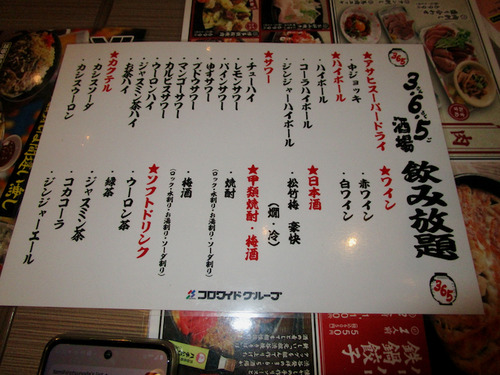 365
3・6・5酒場
飲み放題
365
★アサヒスーパードライ
・中ジョッキ
★ハイボール
・ハイボール
・コークハイボール
・ジンジャーハイボール
★サワー
・チューハイ
・レモンサワー
・パインサワー
・ゆずサワー
・ブドウサワー
・マンゴーサワー
・カルピスサワー
・ウーロンハイ
・ジャスミン茶ハイ
・お茶ハイ
★カクテル
・カシスソーダ
・カシスウーロン
★ワイン
・赤ワイン
・白ワイン
★日本酒
・松竹梅 豪快
(燗・冷)
★甲類焼酎・梅酒
・焼酎
(ロック・水割り・お湯割り・ソーダ割り)
・梅酒
(ロック・水割り・お湯割り・ソーダ割り)
★ソフトドリンク
・ウーロン茶
・緑茶
・ジャスミン茶
・コカコーラ
・ジンジャーエール
コロワイドグループ
鉄鍋餃子
2人前
550